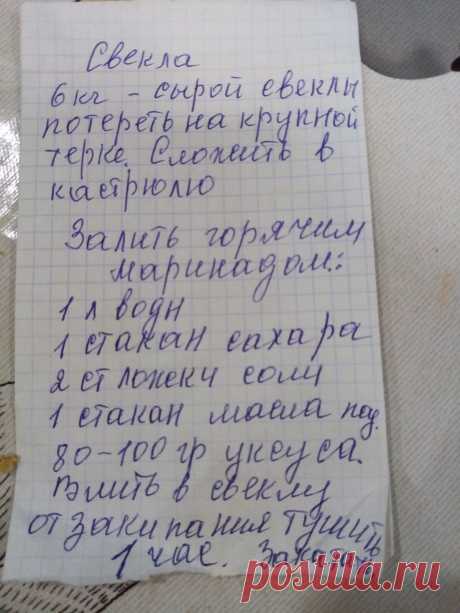 Свекла
6 кг - сырой свеклы
потереть на крупной
терке. Сложить в
кастрюлю
Залить горячим
маринадом:
1 л воды
1 стакан сахара
2 ст ложки соли
1 стакан масла под.
80-100 гр уксуса.
Влить в свеклу
от закипания тушить
1 час.
posta-magazine.ru